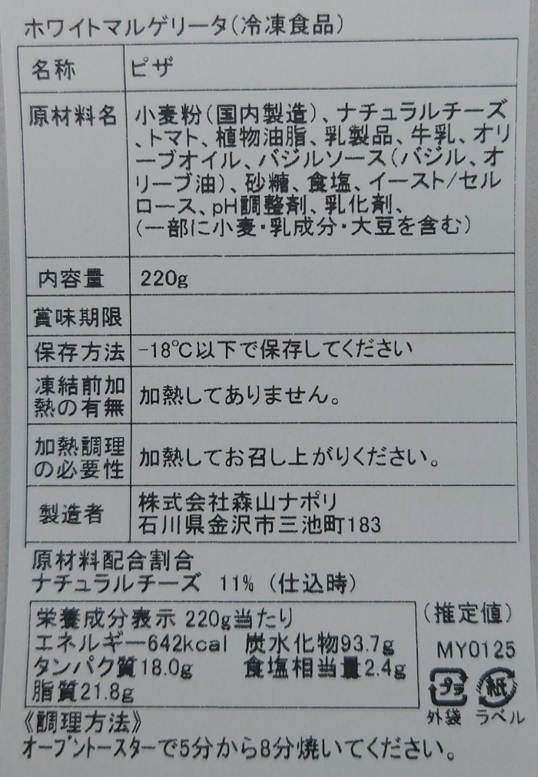 ホワイトマルゲリータ(冷凍食品)
名称 ピザ
原材料名 小麦粉(国内製造)、ナチュラルチーズ
、トマト、植物油脂、乳製品、牛乳、オリ
ーブオイル、バジルソース(バジル、オ
リーブ油)、砂糖、食塩、イースト/セル
ロース、pH調整剤、乳化剤、
(一部に小麦・乳成分・大豆を含む)
内容量 220g
賞味期限
保存方法 -18℃以下で保存してください
凍結前加
熱の有無 加熱してありません。
加熱調理
の必要性 加熱してお召し上がりください。
製造者 株式会社森山ナポリ
石川県金沢市三池町183
原材料配合割合
ナチュラルチーズ 11% (仕込時)
栄養成分表示 220g当たり (推定値)
エネルギー642kcal 炭水化物93.7g
タンパク質18.0g 食塩相当量2.4g
脂質21.8g
MY0125
プラ 紙
外袋 ラベル
《調理方法》
オーブントースターで5分から8分焼いてください。